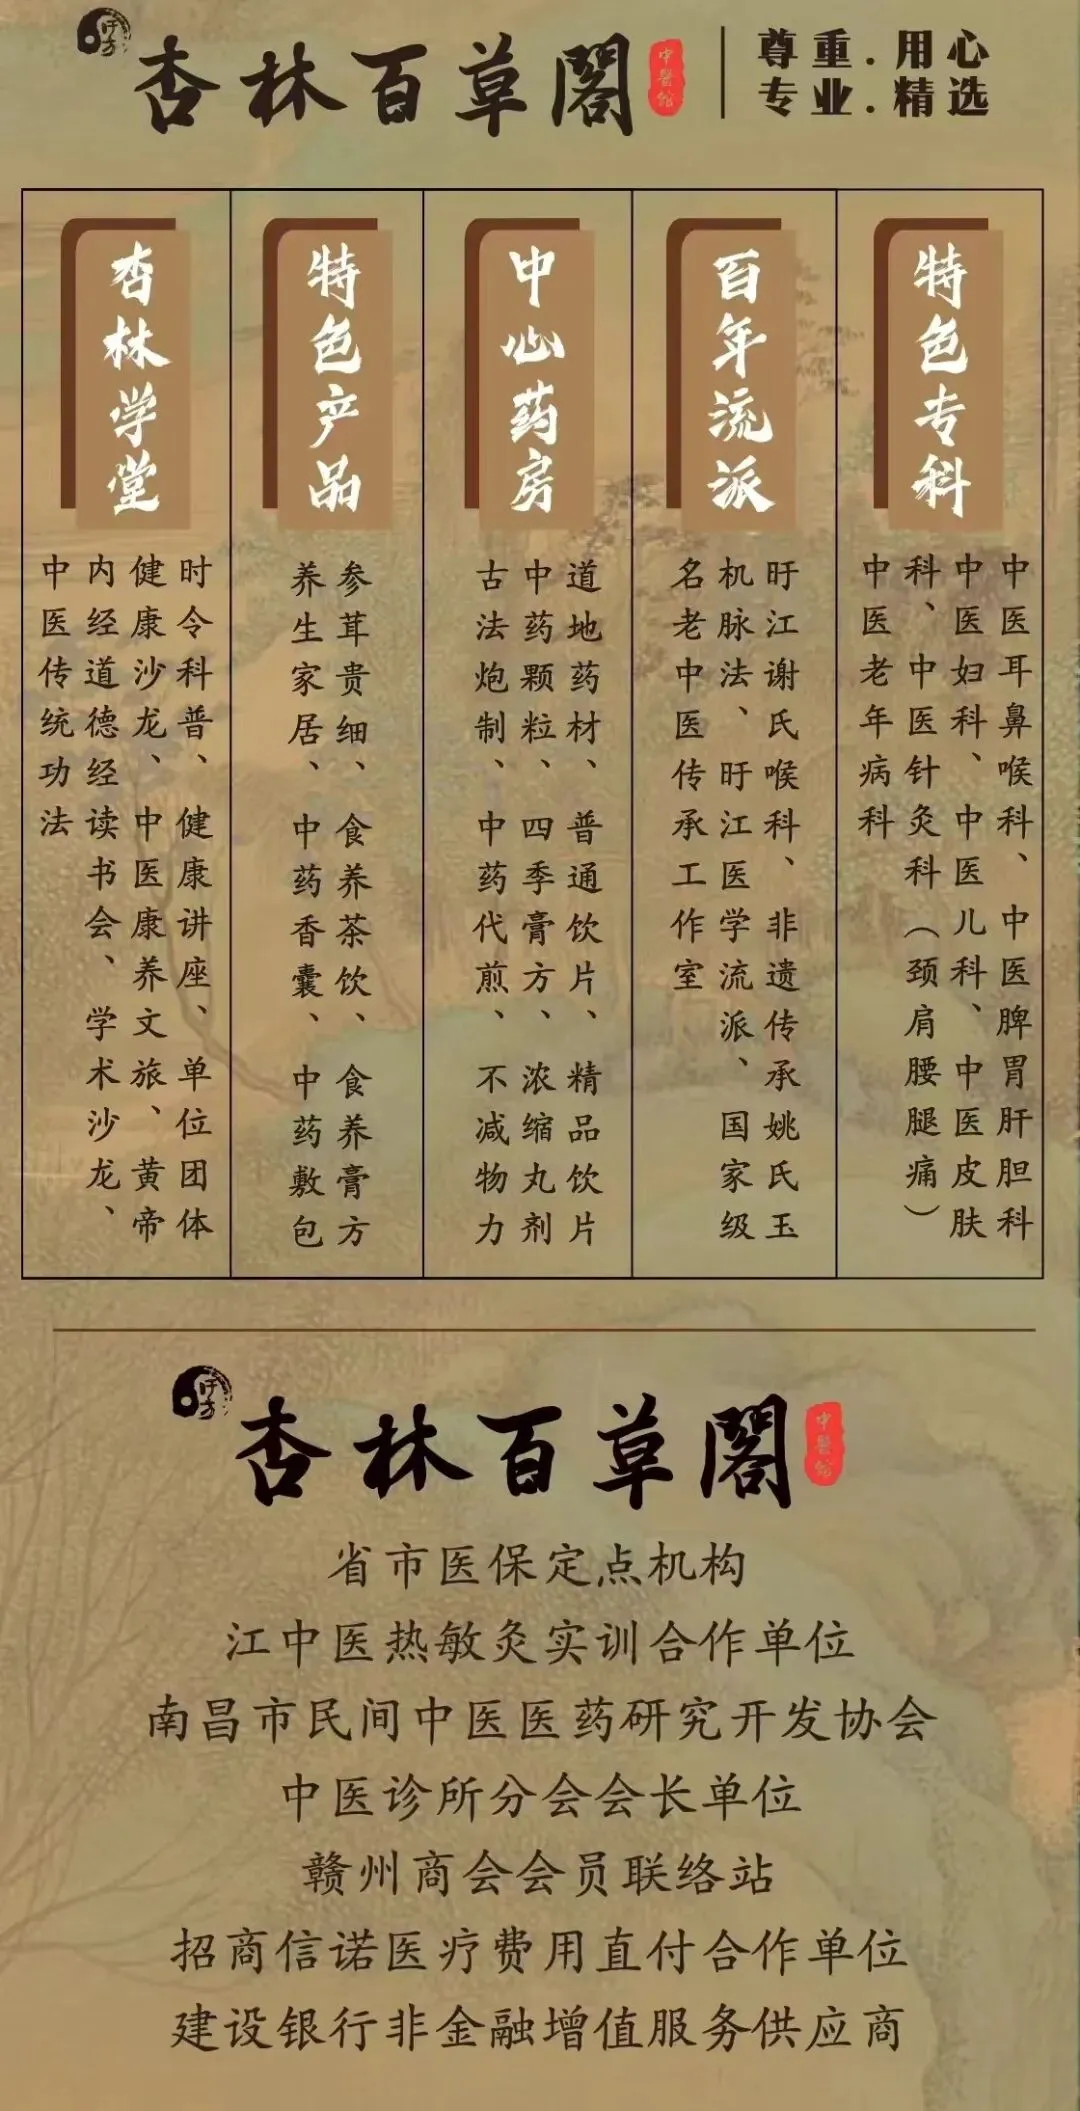 汗方
杏林百草閣
中醫館
尊重.用心
专业.精选
特色专科
中医耳鼻喉科、中医脾胃肝胆科
中医妇科、中医儿科、中医皮肤
科、中医针灸科（颈肩腰腿痛）
中医老年病科
百年流派
盱江谢氏喉科、非遗传承姚氏玉
机脉法、盱江医学流派、国家级
名老中医传承工作室
中心药房
道地药材、普通饮片、精品饮片
中药颗粒、四季膏方、浓缩丸剂
古法炮制、中药代煎、不减物力
特色产品
参茸贵细、食养茶饮、食养膏方
养生家居、中药香囊、中药敷包
杏林学堂
时令科普、健康讲座、单位团体
健康沙龙、中医康养文旅、黄帝
内经道德经读书会、学术沙龙、
中医传统功法
汗方
杏林百草閣
中醫館
省市医保定点机构
江中医热敏灸实训合作单位
南昌市民间中医医药研究开发协会
中医诊所分会会长单位
赣州商会会员联络站
招商信诺医疗费用直付合作单位
建设银行非金融增值服务供应商